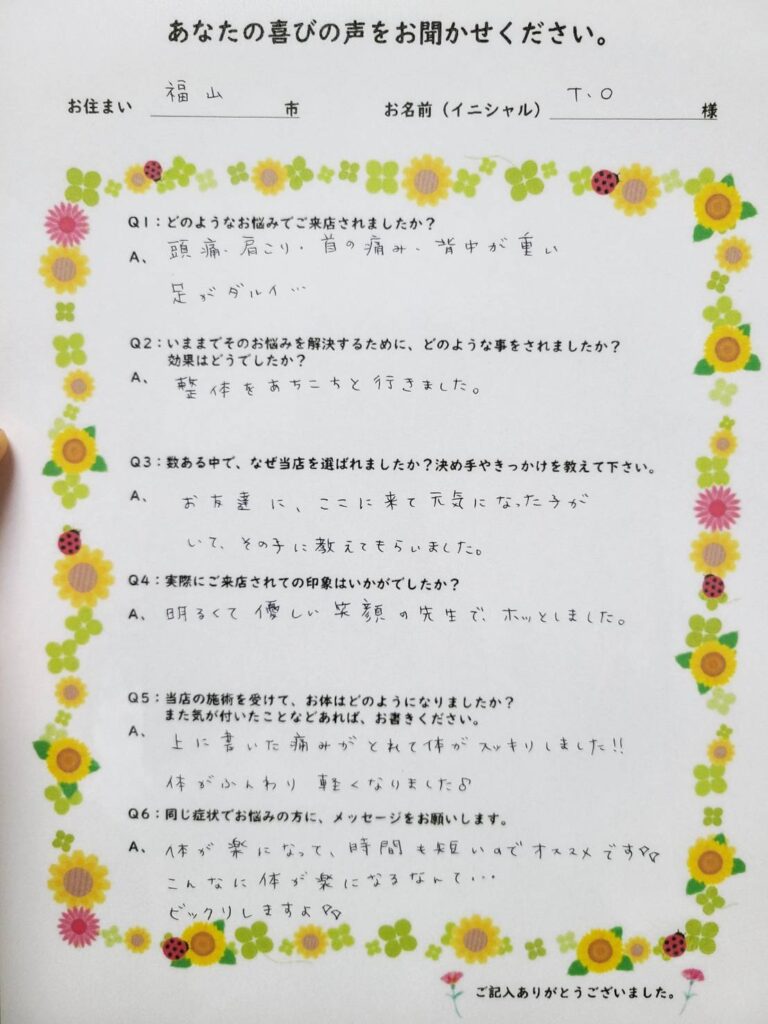 あなたの喜びの声をお聞かせください。
お住まい 福山 市 お名前（イニシャル） T.O 様
Q1：どのようなお悩みでご来店されましたか？
A、 頭痛・肩こり・首の痛み・背中が重い
足がダルイ…
Q2：いままでそのお悩みを解決するために、どのような事をされましたか？
効果はどうでしたか？
A、 整体をあちこちと行きました。
Q3：数ある中で、なぜ当店を選ばれましたか？決め手やきっかけを教えて下さい。
A、 お友達に、ここに来て元気になった子が
いて、その子に教えてもらいました。
Q4：実際にご来店されての印象はいかがでしたか？
A、 明るくて優しい笑顔の先生で、ホッとしました。
Q5：当店の施術を受けて、お体はどのようになりましたか？
また気が付いたことなどあれば、お書きください。
A、 上に書いた痛みがとれて体がスッキリしました!!
体がふんわり軽くなりました♪
Q6：同じ症状でお悩みの方に、メッセージをお願いします。
A、 体が楽になって、時間も短いのでオススメです♡♡
こんなに体が楽になるなんて…
ビックリしますよ♡♡
ご記入ありがとうございました。